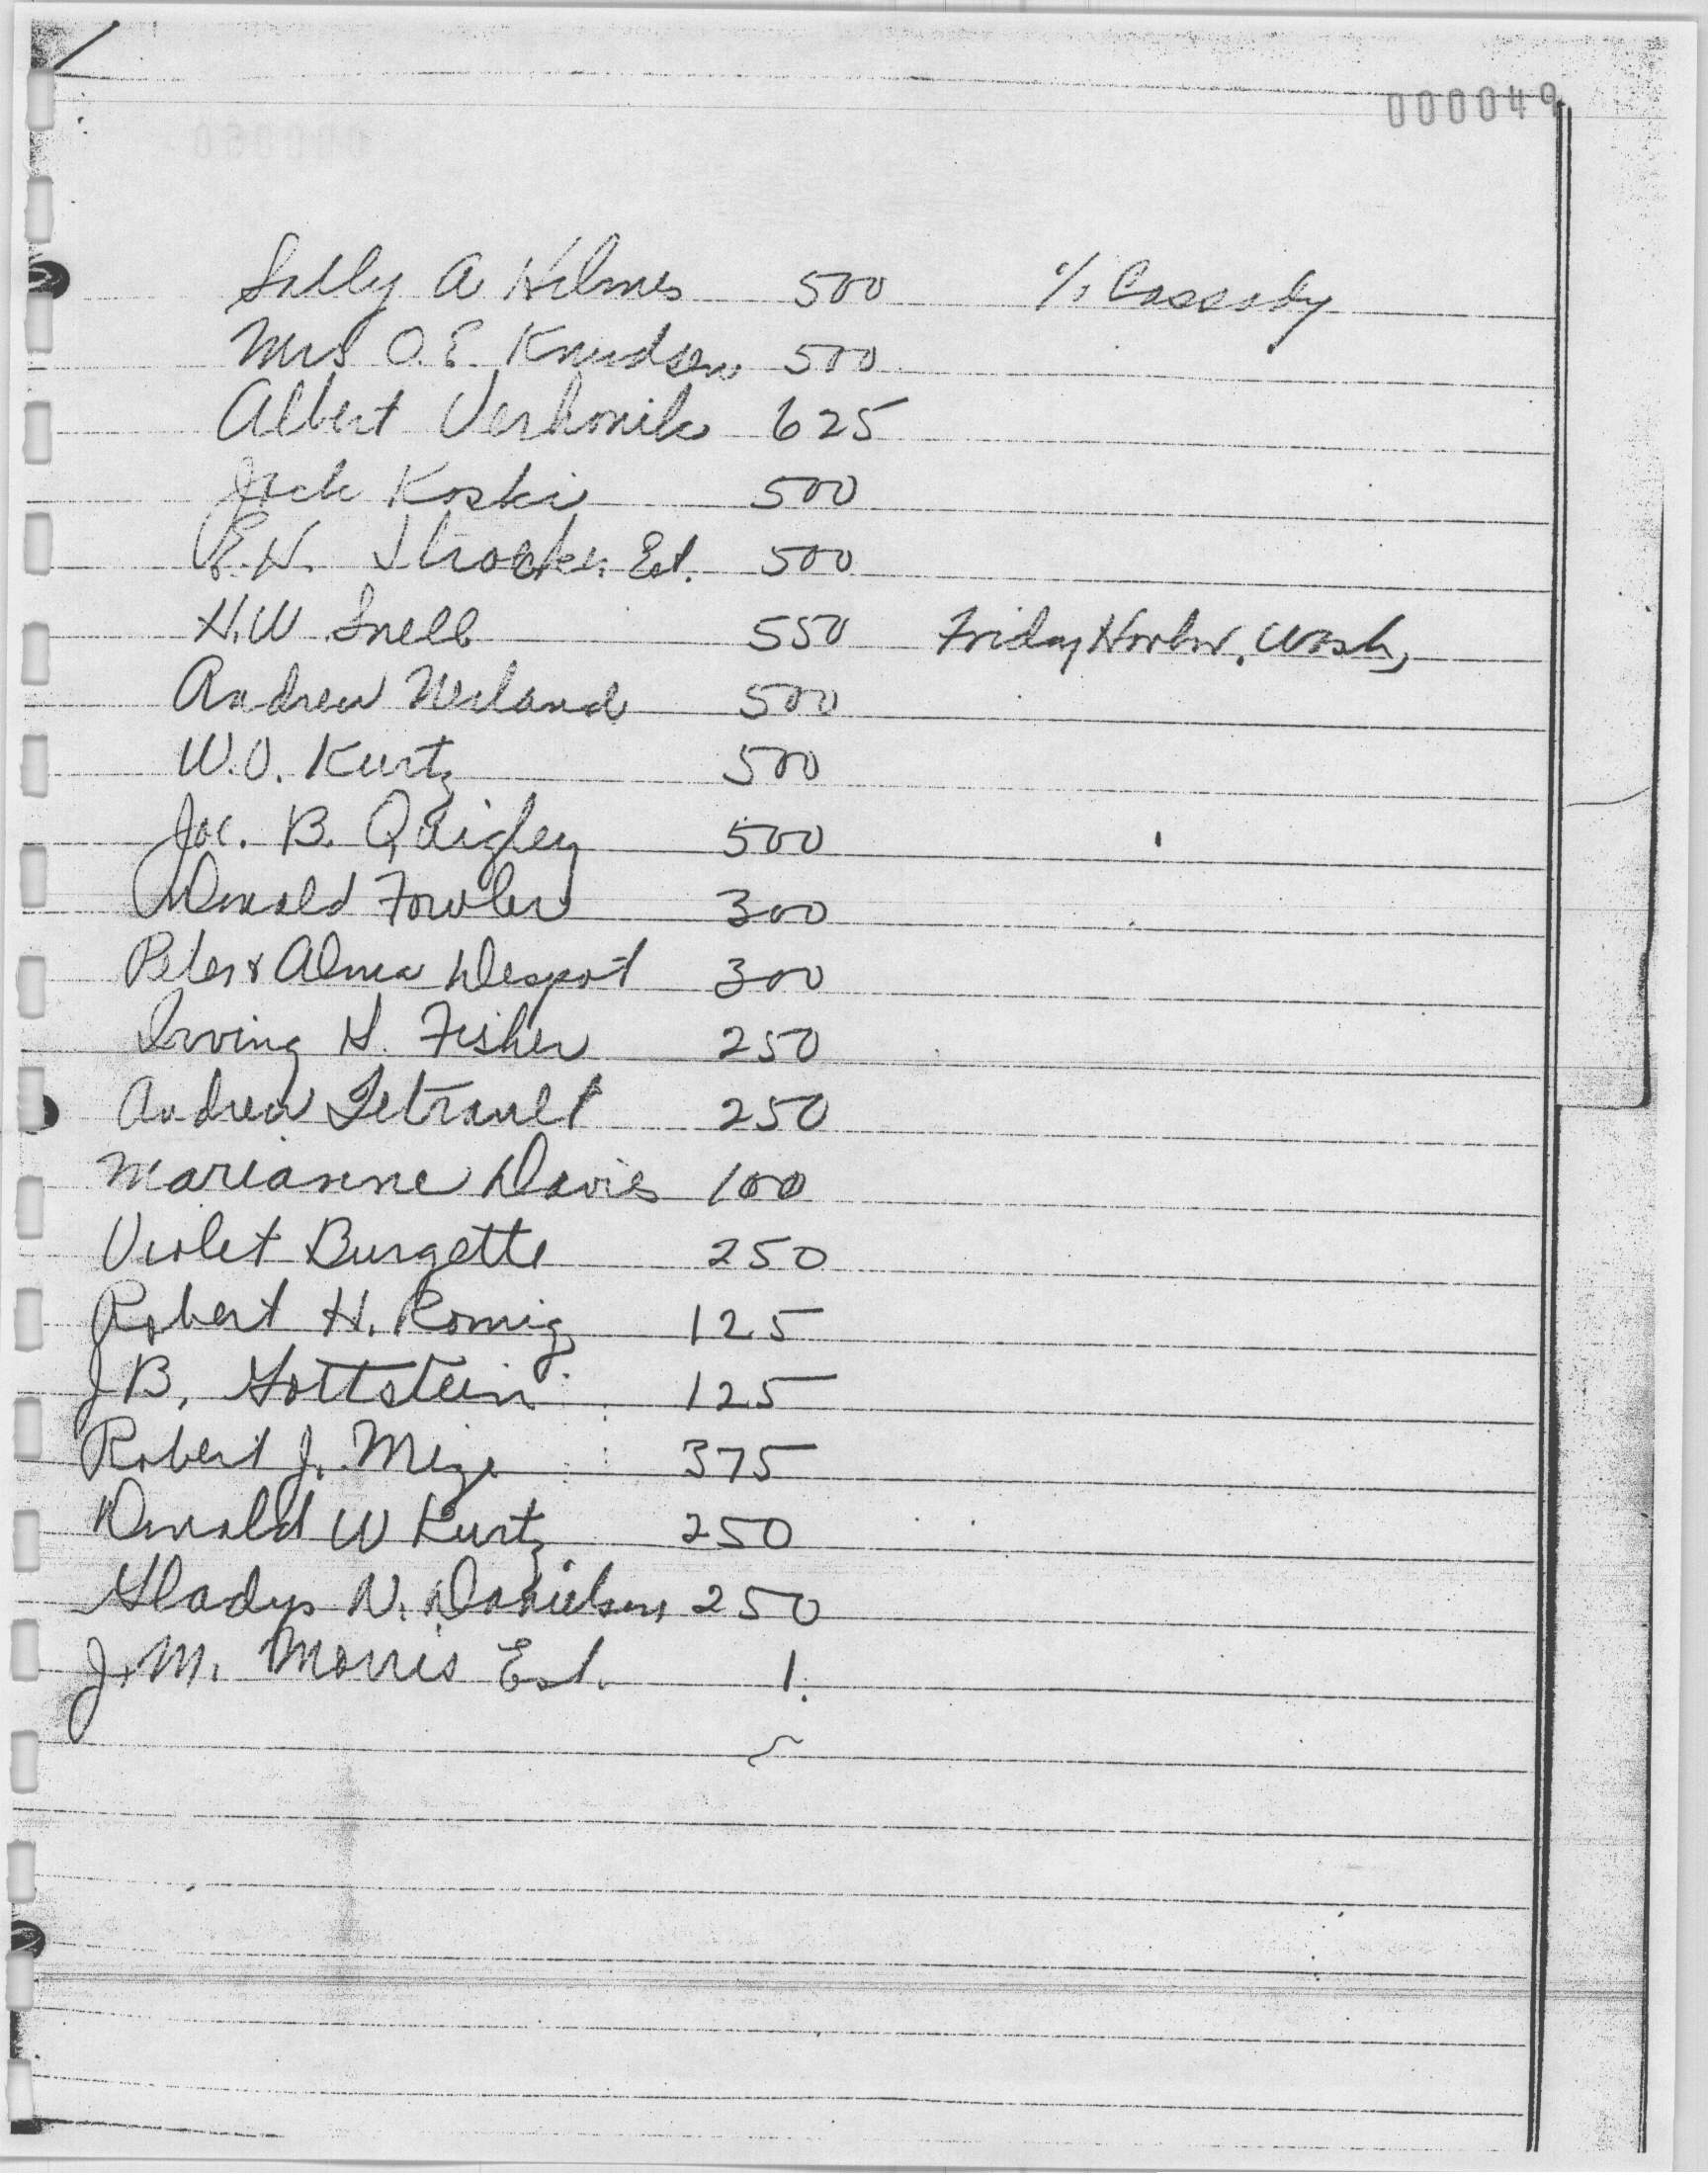 000049
Sally A Holmes 500 % Cassady
Mrs O.E. Knudsen 500
Albert Verhonik 625
Jack Koski 500
E.H. Strocker Est. 500
H.W Snell 550 Friday Harbor, Wash,
Andrew Nerland 500
W.O. Kurtz 500
Jos. B. Quigley 500
Donald Fowler 300
Peter & Alma Despot 300
Irving H. Fisher 250
Andrew Tetrault 250
Marianne Davis 100
Violet Burgette 250
Robert H. Romig 125
JB, Gottstein 125
Robert J. Mize 375
Donald W Kurtz 250
Gladys N. Danielson 250
J.M. Morris Est. 1.